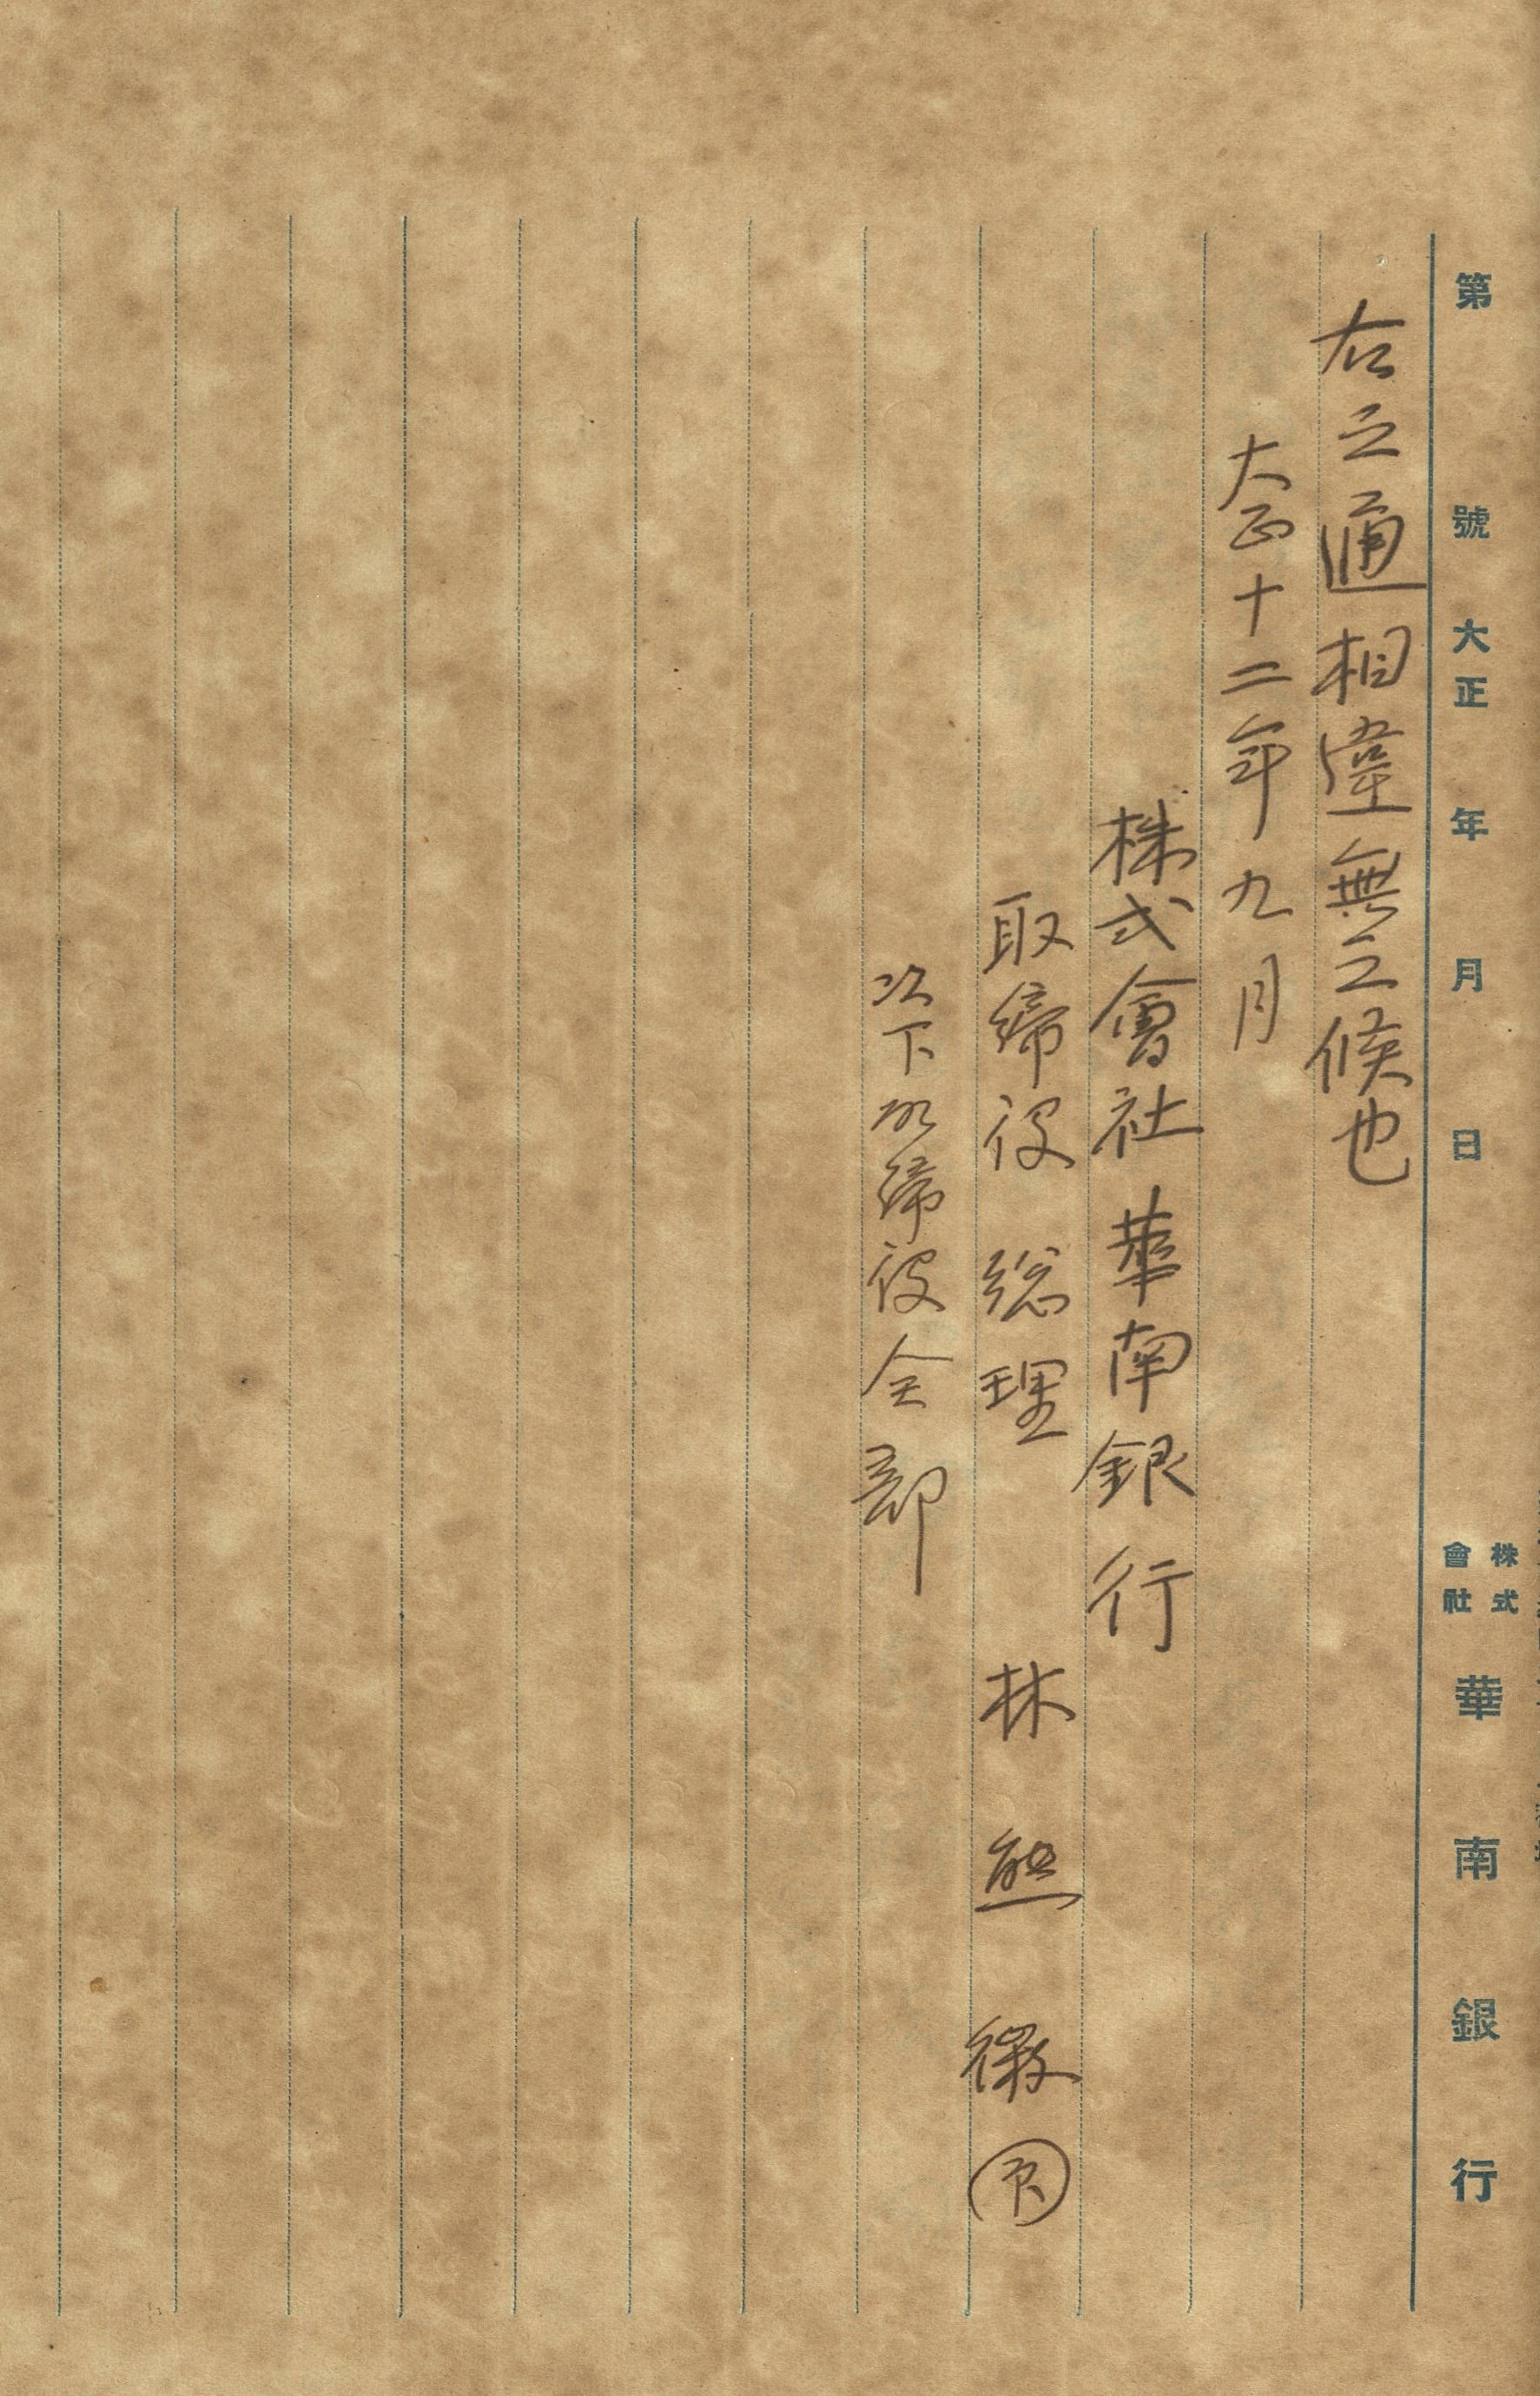 第 號 大正 年 月 日 株式會社 華南銀行
右之通相違無之候也
大正十二年九月
株式會社華南銀行
取締役総理 林熊徴 ㊞
以下取締役全部